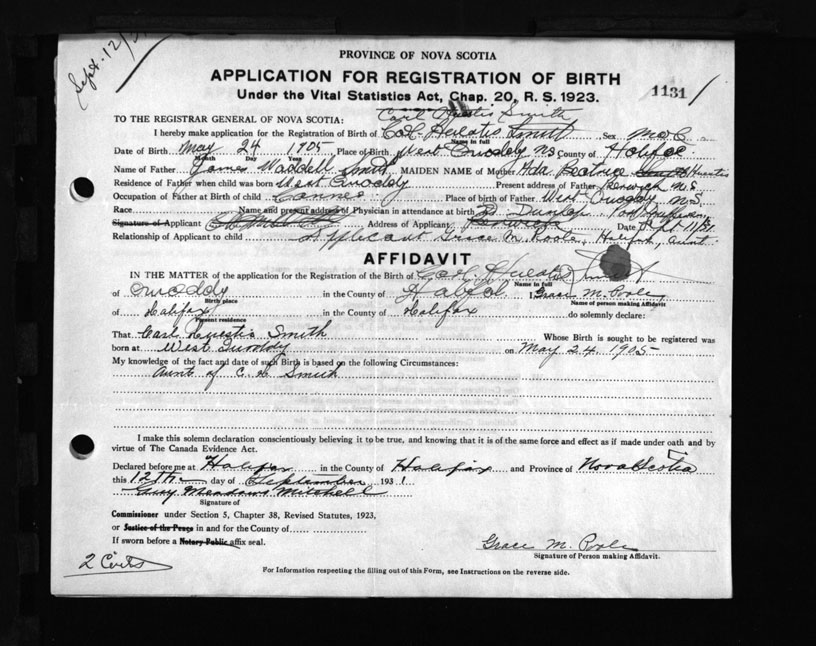 Sept. 12/31
PROVINCE OF NOVA SCOTIA
APPLICATION FOR REGISTRATION OF BIRTH
Under the Vital Statistics Act, Chap. 20, R. S. 1923.
1131
Carl Huestis Smith
TO THE REGISTRAR GENERAL OF NOVA SCOTIA:
I hereby make application for the Registration of Birth of Smith Sex Male
Name in full
Date of Birth May 24 1905 Place of Birth West Quoddy NS County of Halifax
Month Day Year
Name of Father James Waddell Smith MAIDEN NAME of Mother Ada Beatrice Huestis
Residence of Father when child was born West Quoddy Present address of Father N.S.
Occupation of Father at Birth of child Place of birth of Father West Quoddy N.S.
Race Name and present address of Physician in attendance at birth Dr Dunlap
Signature of Applicant Address of Applicant Date Sept 11/31
Relationship of Applicant to child Applicant Grace M. Poole, Halifax, aunt.
AFFIDAVIT
IN THE MATTER of the application for the Registration of the Birth of Smith
Name in full
of Quoddy in the County of Halifax I, Grace M. Poole
Birth place Name of person making Affidavit
of Halifax in the County of Halifax do solemnly declare:
Present residence
That Carl Huestis Smith Whose Birth is sought to be registered was
born at West Quoddy on May 24 1905
My knowledge of the fact and date of such Birth is based on the following Circumstances:
Aunt of C. H. Smith
I make this solemn declaration conscientiously believing it to be true, and knowing that it is of the same force and effect as if made under oath and by
virtue of The Canada Evidence Act.
Declared before me at Halifax in the County of Halifax and Province of Nova Scotia
this 12th day of September 1931
Guy Meadows Mitchell
Signature of
Commissioner under Section 5, Chapter 38, Revised Statutes, 1923,
or Justice of the Peace in and for the County of
If sworn before a Notary Public affix seal.
Grace M. Poole
Signature of Person making Affidavit.
2 Certs
For Information respecting the filling out of this Form, see Instructions on the reverse side.